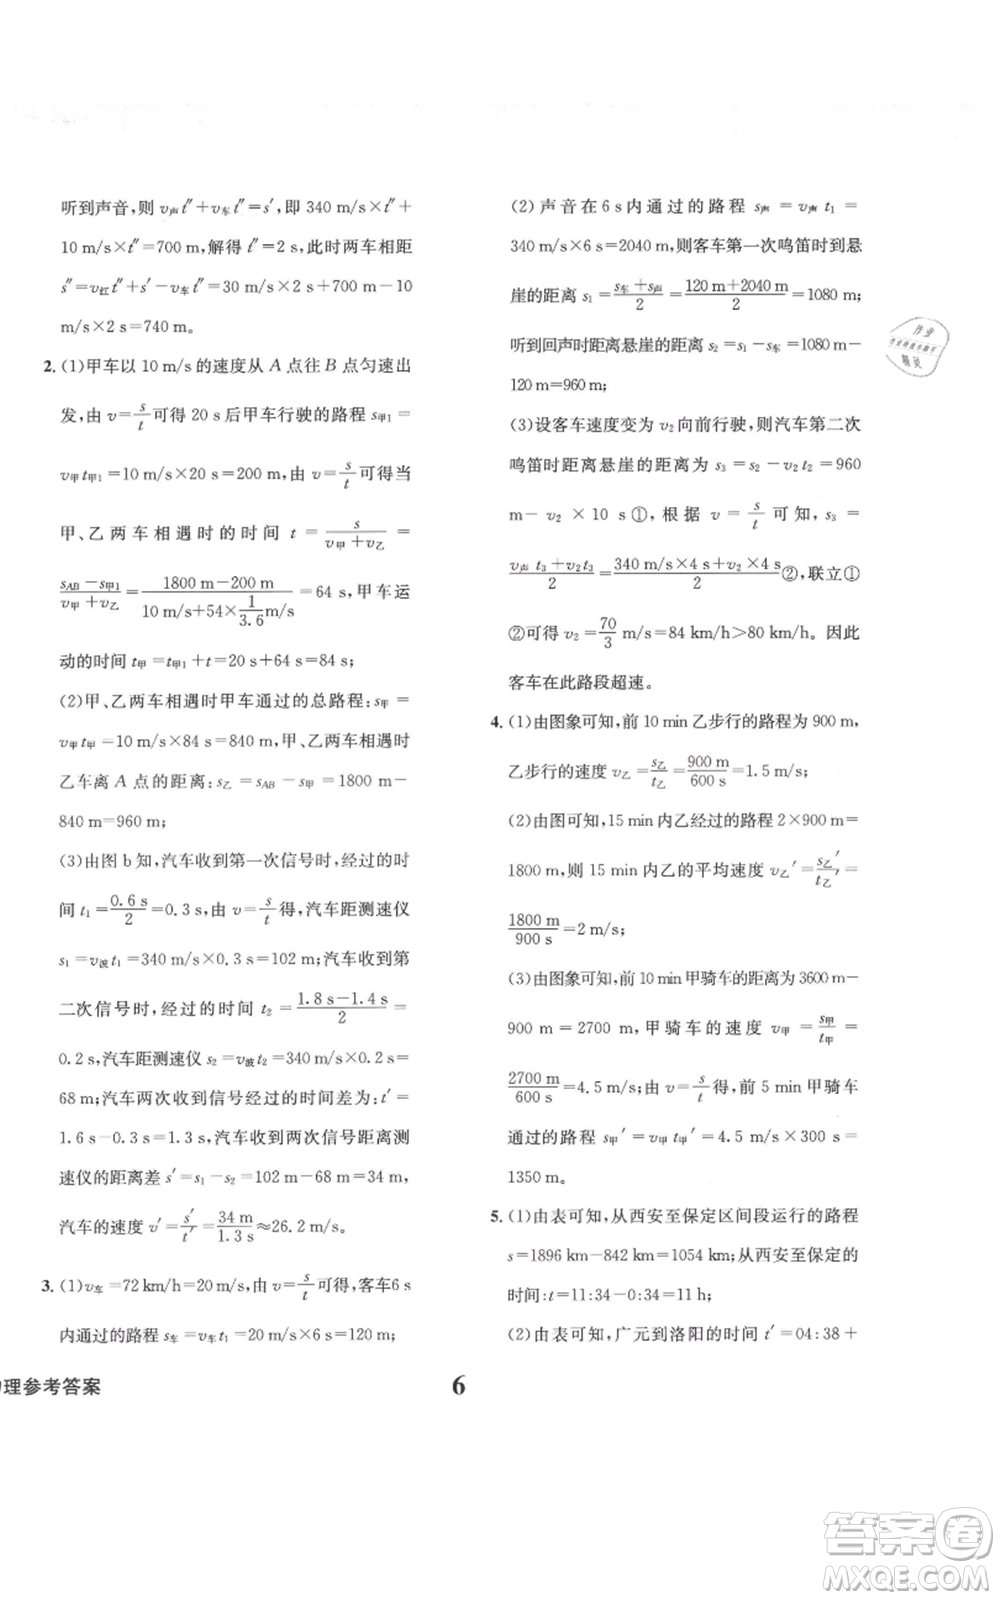 听到声音，则 v声t″＋v车t″＝s′，即 340 m/s×t″＋
10 m/s×t″＝700 m，解得 t″＝2 s，此时两车相距
s″＝v红t″＋s′－v车t″＝30 m/s×2 s＋700 m－10
m/s×2 s＝740 m。
2. (1)甲车以 10 m/s 的速度从 A 点往 B 点匀速出
发，由 v＝s/t 可得 20 s 后甲车行驶的路程 s甲1＝
v甲t甲1＝10 m/s×20 s＝200 m，由 v＝s/t 可得当
甲、乙两车相遇时的时间 t＝s/(v甲＋v乙)＝
(sAB－s甲1)/(v甲＋v乙)＝(1800 m－200 m)/(10 m/s＋54×1/3.6 m/s)＝64 s，甲车运
动的时间 t甲＝t甲1＋t＝20 s＋64 s＝84 s；
(2)甲、乙两车相遇时甲车通过的总路程：s甲＝
v甲t甲＝10 m/s×84 s＝840 m，甲、乙两车相遇时
乙车离 A 点的距离：s乙＝sAB－s甲＝1800 m－
840 m＝960 m；
(3)由图 b 知，汽车收到第一次信号时，经过的时
间 t1＝0.6 s/2＝0.3 s，由 v＝s/t 得，汽车距测速仪
s1＝v波t1＝340 m/s×0.3 s＝102 m；汽车收到第
二次信号时，经过的时间 t2＝(1.8 s－1.4 s)/2＝
0.2 s，汽车距测速仪 s2＝v波t2＝340 m/s×0.2 s＝
68 m；汽车两次收到信号经过的时间差为：t′＝
1.6 s－0.3 s＝1.3 s，汽车收到两次信号距离测
速仪的距离差 s′＝s1－s2＝102 m－68 m＝34 m，
汽车的速度 v′＝s′/t′＝34 m/1.3 s≈26.2 m/s。
3. (1)v车＝72 km/h＝20 m/s，由 v＝s/t 可得，客车6 s
内通过的路程 s车＝v车t1＝20 m/s×6 s＝120 m；
(2)声音在 6 s 内通过的路程 s声＝v声t1＝
340 m/s×6 s＝2040 m，则客车第一次鸣笛时到悬
崖的距离 s1＝(s车＋s声)/2＝(120 m＋2040 m)/2＝1080 m，
听到回声时距离悬崖的距离 s2＝s1－s车＝1080 m－
120 m＝960 m；
(3)设客车速度变为 v2 向前行驶，则汽车第二次
鸣笛时距离悬崖的距离为 s3＝s2－v2t2＝960
m－v2×10 s①，根据 v＝s/t 可知，s3＝
(v声t3＋v2t3)/2＝(340 m/s×4 s＋v2×4 s)/2②，联立①
②可得 v2＝70/3 m/s＝84 km/h＞80 km/h。因此
客车在此路段超速。
4. (1)由图象可知，前 10 min 乙步行的路程为 900 m，
乙步行的速度 v乙＝s乙/t乙＝900 m/600 s＝1.5 m/s；
(2)由图可知，15 min 内乙经过的路程 2×900 m＝
1800 m，则 15 min 内乙的平均速度 v乙′＝s乙′/t乙′＝
1800 m/900 s＝2 m/s；
(3)由图象可知，前 10 min 甲骑车的距离为 3600 m－
900 m＝2700 m，甲骑车的速度 v甲＝s甲/t甲＝
2700 m/600 s＝4.5 m/s；由 v＝s/t，前 5 min 甲骑车
通过的路程 s甲′＝v甲t甲′＝4.5 m/s×300 s＝
1350 m。
5. (1)由表可知，从西安至保定区间段运行的路程
s＝1896 km－842 km＝1054 km；从西安至保定的
时间：t＝11:34－0:34＝11 h；
(2)由表可知，广元到洛阳的时间 t′＝04:38＋
理参考答案
6
作业
精灵
答案卷
MXQE.COM